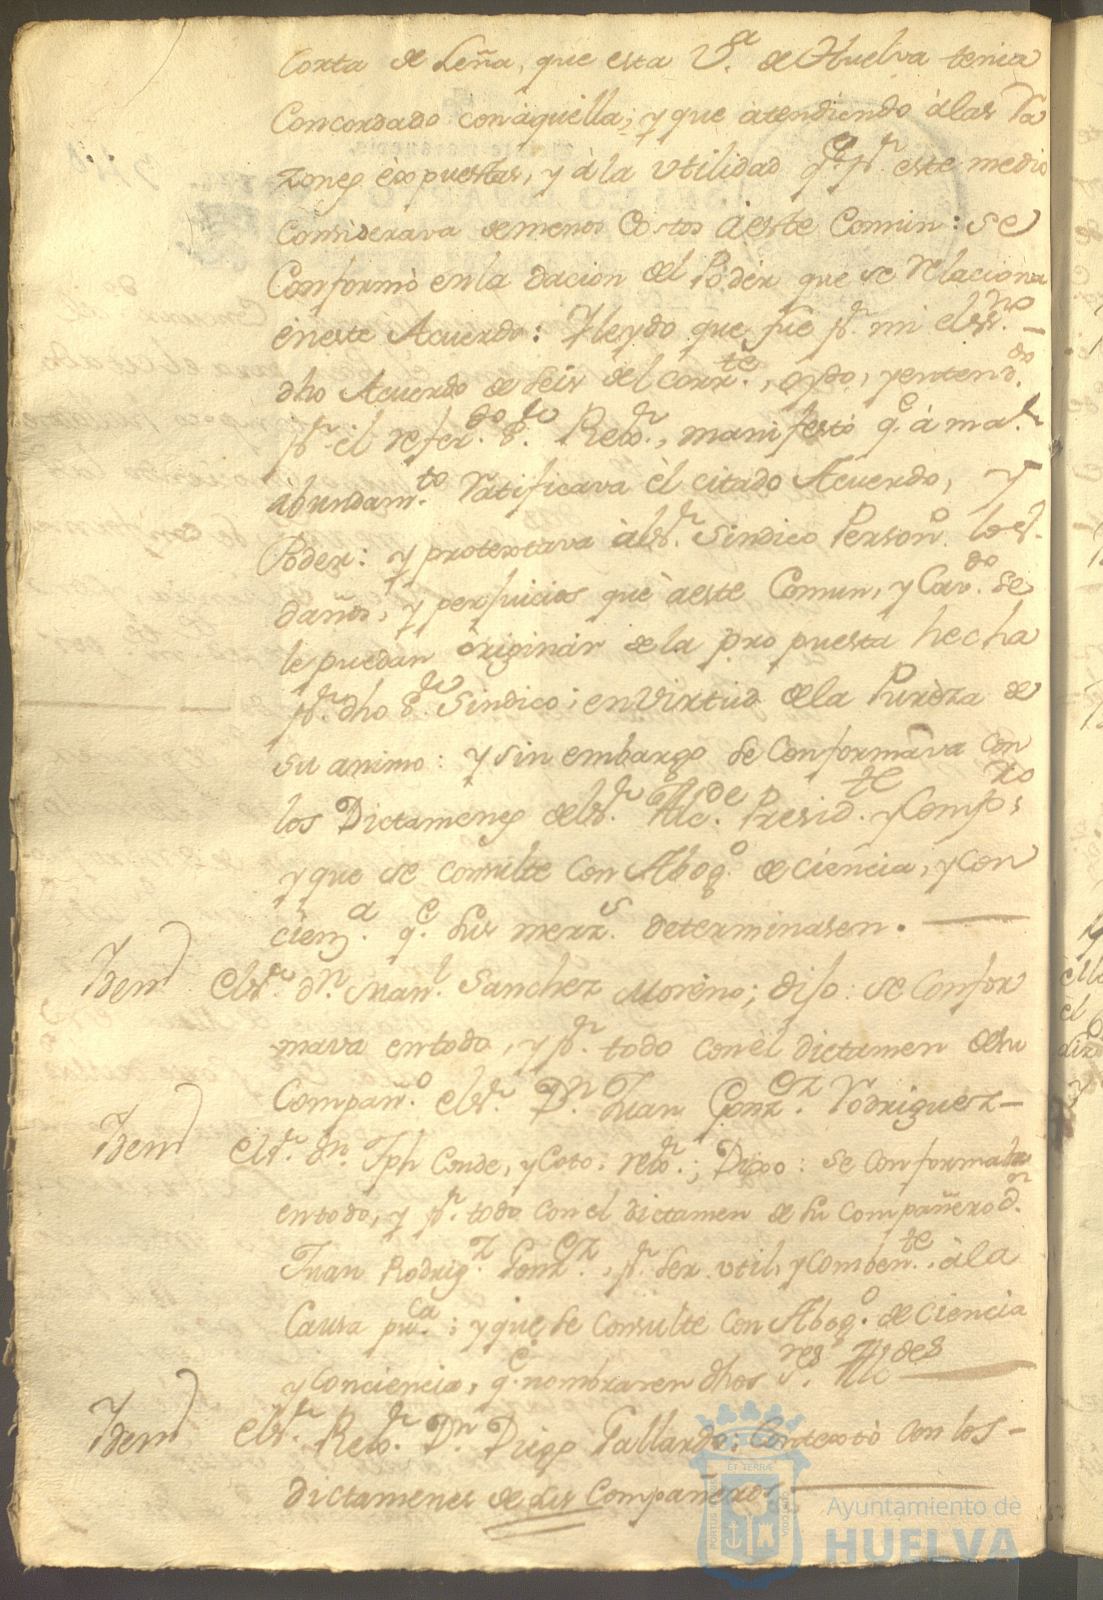 Corta de Leña, que esta V.ª de Huelva tenia
Concordado con aquella; y que atendiendo à las Ra
zones èxpuestas, y à la utilidad q.e p.r este medio
Considerava de menos Costos à este Comun: se
Conformò en la dacion del Poder que se relaciona
en este Acuerdo: Y leydo que fue p.r mi el ss.no –
dho Acuerdo de seis del corr.te, oydo, y entend.do
p.r èl refer.do s.or Rex.or, manifestò q.e à ma.r
àbundam.to Ratificava èl citado Acuerdo, y
Poder: y protextava àl s.r Sindico Person.o los
daños, y perjuicios que à este Comun, y Cav.do se
le puedan òriginàr de la propuesta hecha
p.r dho s.or Sindico; en virtud de la Pureza de
su animo: y sin embargo se Conformava con
los Dictamenes del s.r Alc.de Presid.te y Comp.ro;
y que se consulte con Abog.o de ciencia, y con
cienz.a q.e sus merz.s determinasen.
Idem el s.r dn. Man.l Sanchez Moreno; dijo: se confor
mava en todo, y p.r todo con èl dictamen de su
Compañ.o el s.r Dn. Juan Gonz.ez Rodriguez –
Idem el s.r dn. Jph Conde, y Coto. rex.or; Dixo: se conformaba
en todo, y p.r todo con el dictamen de su compañero dn.
Juan Rodrig.z Gonz.ez, p.r ser util, y comben.te, à la
Causa pu.ca; y que se consulte con Abog.o de ciencia
y conciencia, q.e nombraren dhos s.res Alc.des
Idem el s.r Rex.or Dn. Diego Gallardo; Contextò con los –
dictamenes de sus Compañeros
Ayuntamiento de
HUELVA